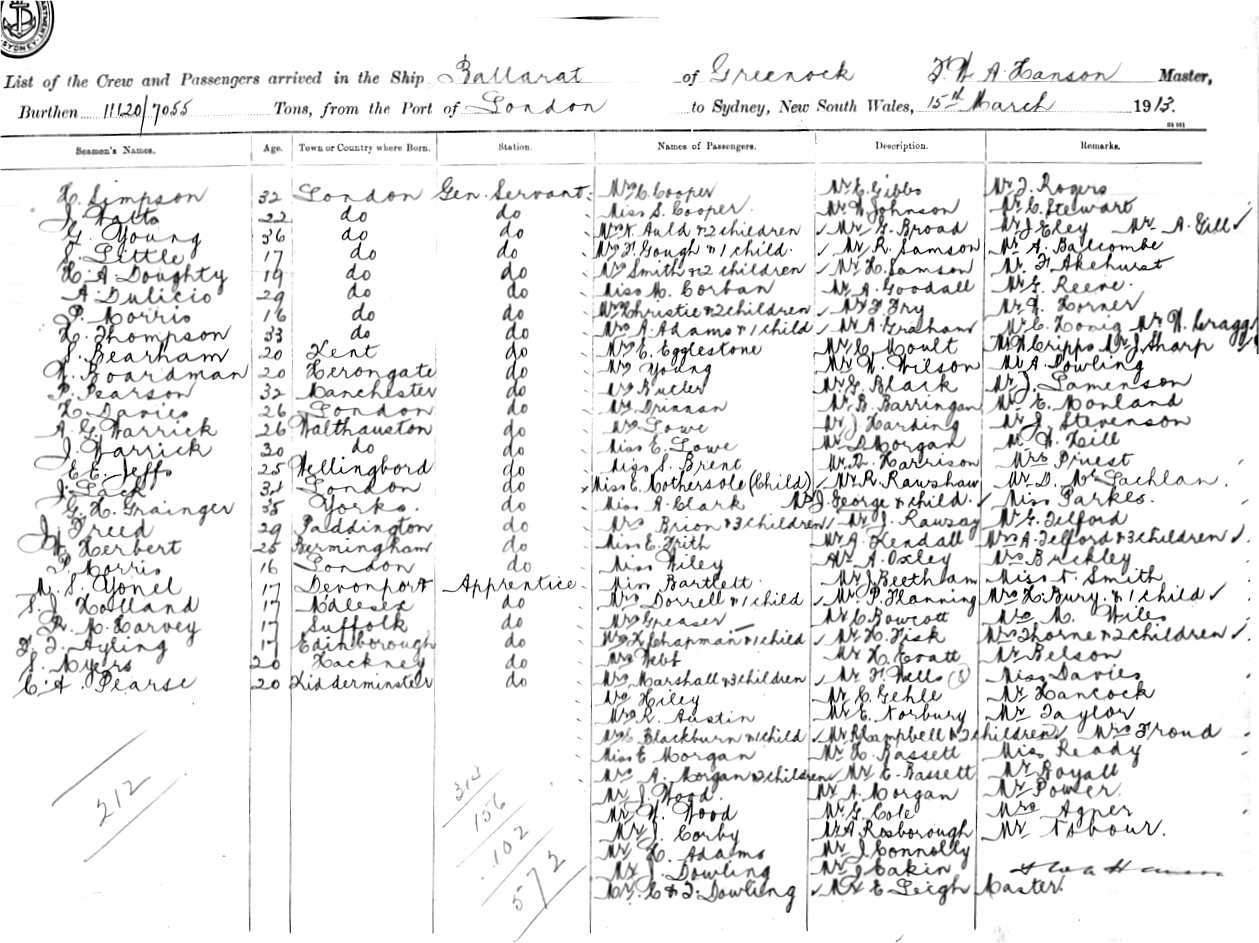 DEPARTMENT. SYDNEY
List of the Crew and Passengers arrived in the Ship Ballarat of Greenock F. W. A. Hanson Master,
Burthen 11120/7055 Tons, from the Port of London to Sydney, New South Wales, 15th March 1913.
Seamen's Names. Age. Town or Country where Born. Station. Names of Passengers. Description. Remarks.
H. Simpson 32 London Gen. Servant. Mrs C. Cooper Mr C. Gibbs Mr J. Rogers
J. Watts 22 do do Miss S. Cooper. Mr W Johnson Mr C. Stewart
G. Young 36 do do Mrs N. Auld & 2 children Mr G. Broad Mr J Eley Mr A. Gill
S. Little 17 do do Mrs F. Gough & 1 child. Mr R. Samson Mr A. Balcombe
H. A. Doughty 19 do do Mrs Smith & 2 children Mr H. Samson Mr F. Akehurst
A. Dulicio 29 do do Miss M. Corban Mr A. Goodall Mr G. Reene.
P. Morris 16 do do Mrs Christie & 2 children Mr F. Fry Mr H. Horner
H. Thompson 33 do do Mrs A. Adams & 1 child Mr A. Graham Mr C. Honig Mr W. Cragg
S. Bearham 20 Kent do Mrs E. Egglestone Mr C. Moult Mr H Cripps Mr J. Sharp
W. Boardman 20 Herongate do Mrs Young Mr W. Wilson Mr A. Dowling
P. Pearson 32 Manchester do Mrs Butler Mr G. Black Mr J. Lamenson
H. Davies 26 London do Mrs Drinnan Mr B. Barringan Mr E. Monland
A. G. Warrick 26 Walthauston do Mrs Lowe Mr J. Harding Mr J. Stevenson
J. Warrick 30 do do Miss E. Lowe Mr D. Morgan Mr W. Hill
E. E. Jeffs 25 Wellingbord do Miss S. Brent Mr D. Harrison Mrs Priest
J. Lack 31 London do Miss E. Mothersole (Child) Mr R. Rawshaw Mr D. McLachlan.
G. H. Grainger 35 Yorks. do Miss A. Clark Mr J. George & child. Miss Parkes.
J. Freed 29 Paddington do Mrs Brion & 3 children Mr J. Rawsay Mr G. Telford
W. Herbert 25 Bermingham do Miss E. Frith Mr A. Kendall Mrs A. Telford & 3 children
P. Morris 16 London do Miss Wiley Mr A. Oxley Mrs Brickley
M. S. Yonel 17 Devonport Apprentice Miss Bartlett. Mr J. Beetham Miss N. Smith
S. J. Holland 17 Mdlesex do Mrs Dorrell & 1 child Mr P. Flanning Mrs H. Bury. & 1 child
R. M. Harvey 17 Suffolk do Mrs Greaser Mr C. Bowcott Mrs M. Wiles
F. J. Ayling 17 Edinborough do Mrs H. Chapman & 1 child Mr H. Fisk Mrs Thorne & 2 children
S. Myers 20 Hackney do Mrs Webb Mr H. Evatt Mr Belson
C. A. Pearse 20 Kidderminster do Mrs Marshall & 3 children Mr F. Wells Miss Davies
Mrs Hiley Mr C. Gehle Mr Hancock
Mrs R. Austin Mr E. Norbury Mr Taylor
Mrs C. Blackburn & 1 child Mr R. Campbell & 2 children Mrs Froud
Miss E Morgan Mr H. Bassett Miss Ready
Mrs A. Morgan & 2 children Mr E. Bassett Mr Royall
Mr J. Wood. Mr A. Morgan Mr Power.
Mr W. Wood Mr G. Cole Mrs Agner
Mr J. Corby Mr A. Rosborough Mr Nsbour.
Mr H. Adams Mr J. Connolly
Mr J. Dowling Mr J. Eakin
Mr. C & F. Dowling Mr E Leigh Master.
212
314
156
102
572